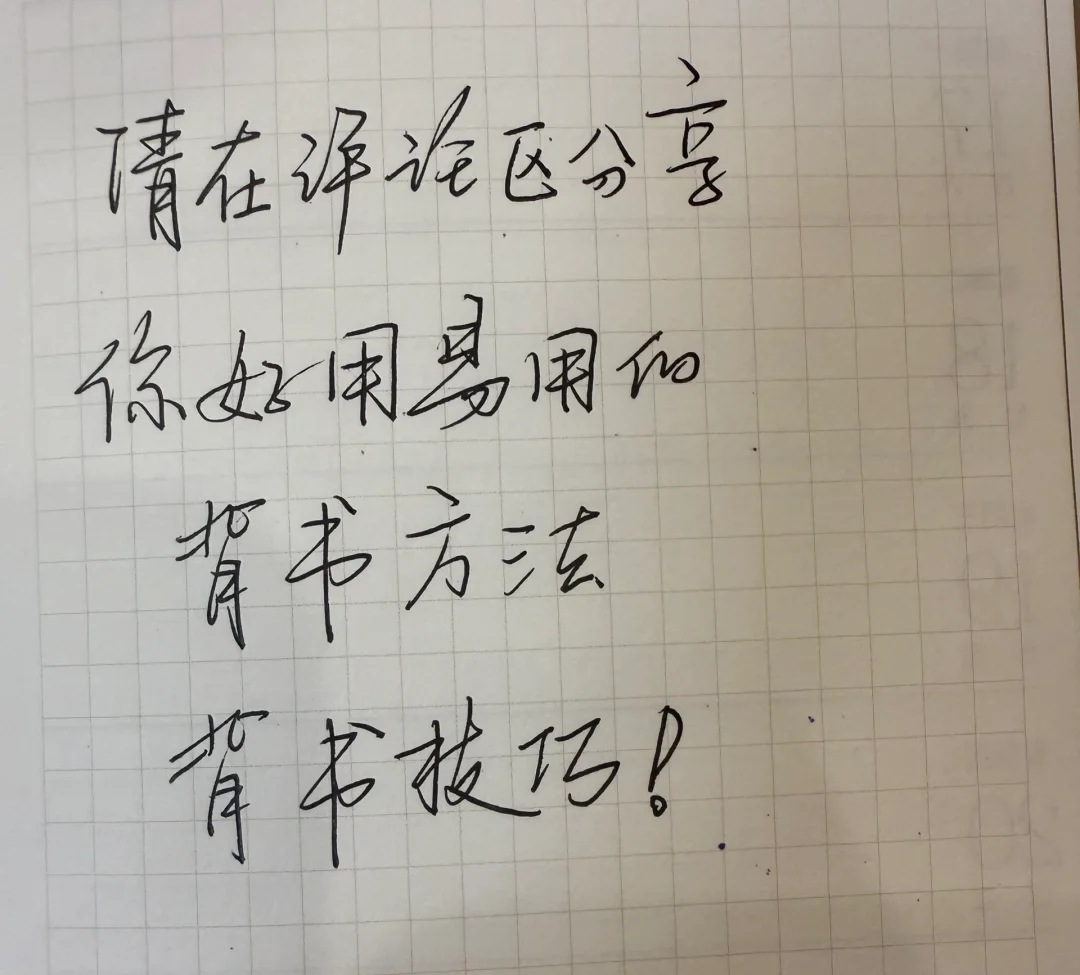 请在评论区分享
你好用易用的
背书方法
背书技巧！